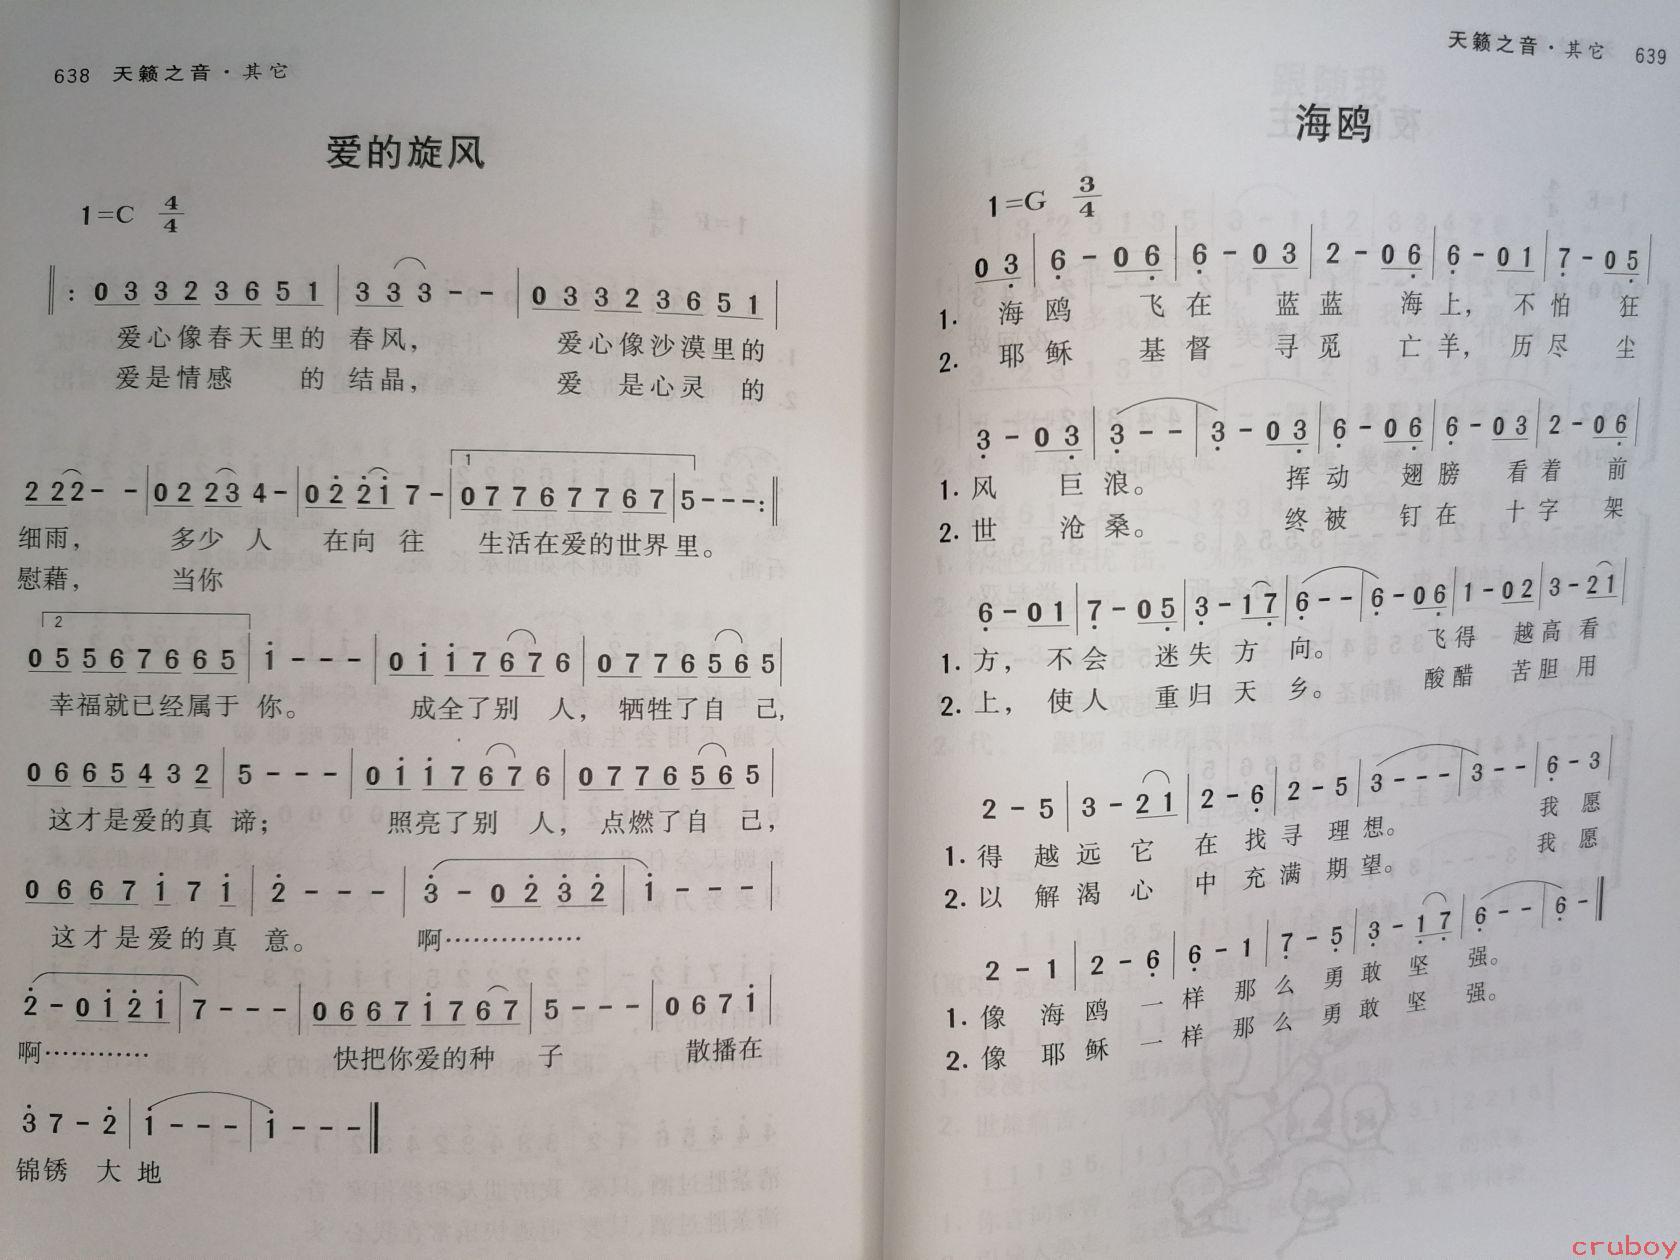 638 天籁之音·其它
爱的旋风
1=C 4/4
‖: 0 3 3 2 3 6 5 1 | 3 3 3 - - | 0 3 3 2 3 6 5 1 |
爱心像春天里的 春风， 爱心像沙漠里的
爱是情感 的 结晶， 爱 是心灵 的
2 2 2 - - | 0 2 2 2 3 4 - | 0 2̇ 2̇ 2̇ 1̇ 7 - | 1 0 7 7 6 7 7 6 7 | 5 - - - :‖
细雨， 多少 人 在向 往 生活在爱的世界里。
慰藉， 当你
2 0 5 5 6 7 6 6 5 | 1̇ - - - | 0 1̇ 1̇ 7 6 7 6 | 0 7 7 6 5 6 5 |
幸福就已经属于 你。 成全了别 人， 牺牲了自 己，
0 6 6 5 4 3 2 | 5 - - - | 0 1̇ 1̇ 7 6 7 6 | 0 7 7 6 5 6 5 |
这才是爱的真 谛； 照亮了别 人， 点燃了自 己，
0 6 6 7 1̇ 7 1̇ | 2̇ - - - | 3̇ - 0 2̇ 3̇ 2̇ | 1̇ - - - |
这才是爱的真 意。 啊……………
2̇ - 0 1̇ 2̇ 1̇ | 7 - - - | 0 6 6 7 1̇ 7 6 7 | 5 - - - | 0 6 7 1̇ |
啊………… 快把你爱的种 子 散播在
3̇ 7 - 2̇ | 1̇ - - - | 1̇ - - - ‖
锦绣 大 地
天籁之音·其它 639
海鸥
1=G 3/4
0 3̣ | 6̣ - 0 6̣ | 6̣ - 0 3 | 2 - 0 6̣ | 6̣ - 0 1 | 7̣ - 0 5̣ |
1. 海 鸥 飞 在 蓝 蓝 海 上， 不 怕 狂
2. 耶 稣 基 督 寻 觅 亡 羊， 历 尽 尘
3̣ - 0 3̣ | 3̣ - - | 3̣ - 0 3̣ | 6̣ - 0 6̣ | 6̣ - 0 3 | 2 - 0 6̣ |
1. 风 巨 浪。 挥 动 翅 膀 看 着 前
2. 世 沧 桑。 终 被 钉 在 十 字 架
6̣ - 0 1 | 7̣ - 0 5̣ | 3̣ - 1 7̣ | 6̣ - - | 6̣ - 0 6̣ | 1 - 0 2 | 3 - 2 1 |
1. 方， 不 会 迷 失 方 向。 飞 得 越 高 看
2. 上， 使 人 重 归 天 乡。 酸 醋 苦 胆 用
2 - 5 | 3 - 2 1 | 2 - 6̣ | 2 - 5 | 3 - - - | 3 - - | 6̣ - 3 |
1. 得 越 远 它 在 找 寻 理 想。 我 愿
2. 以 解 渴 心 中 充 满 期 望。 我 愿
2 - 1 | 2 - 6̣ | 6̣ - 1 | 7̣ - 5̣ | 3̣ - 1̣ 7̣ | 6̣ - - | 6̣ - ‖
1. 像 海 鸥 一 样 那 么 勇 敢 坚 强。
2. 像 耶 稣 一 样 那 么 勇 敢 坚 强。
cruboy